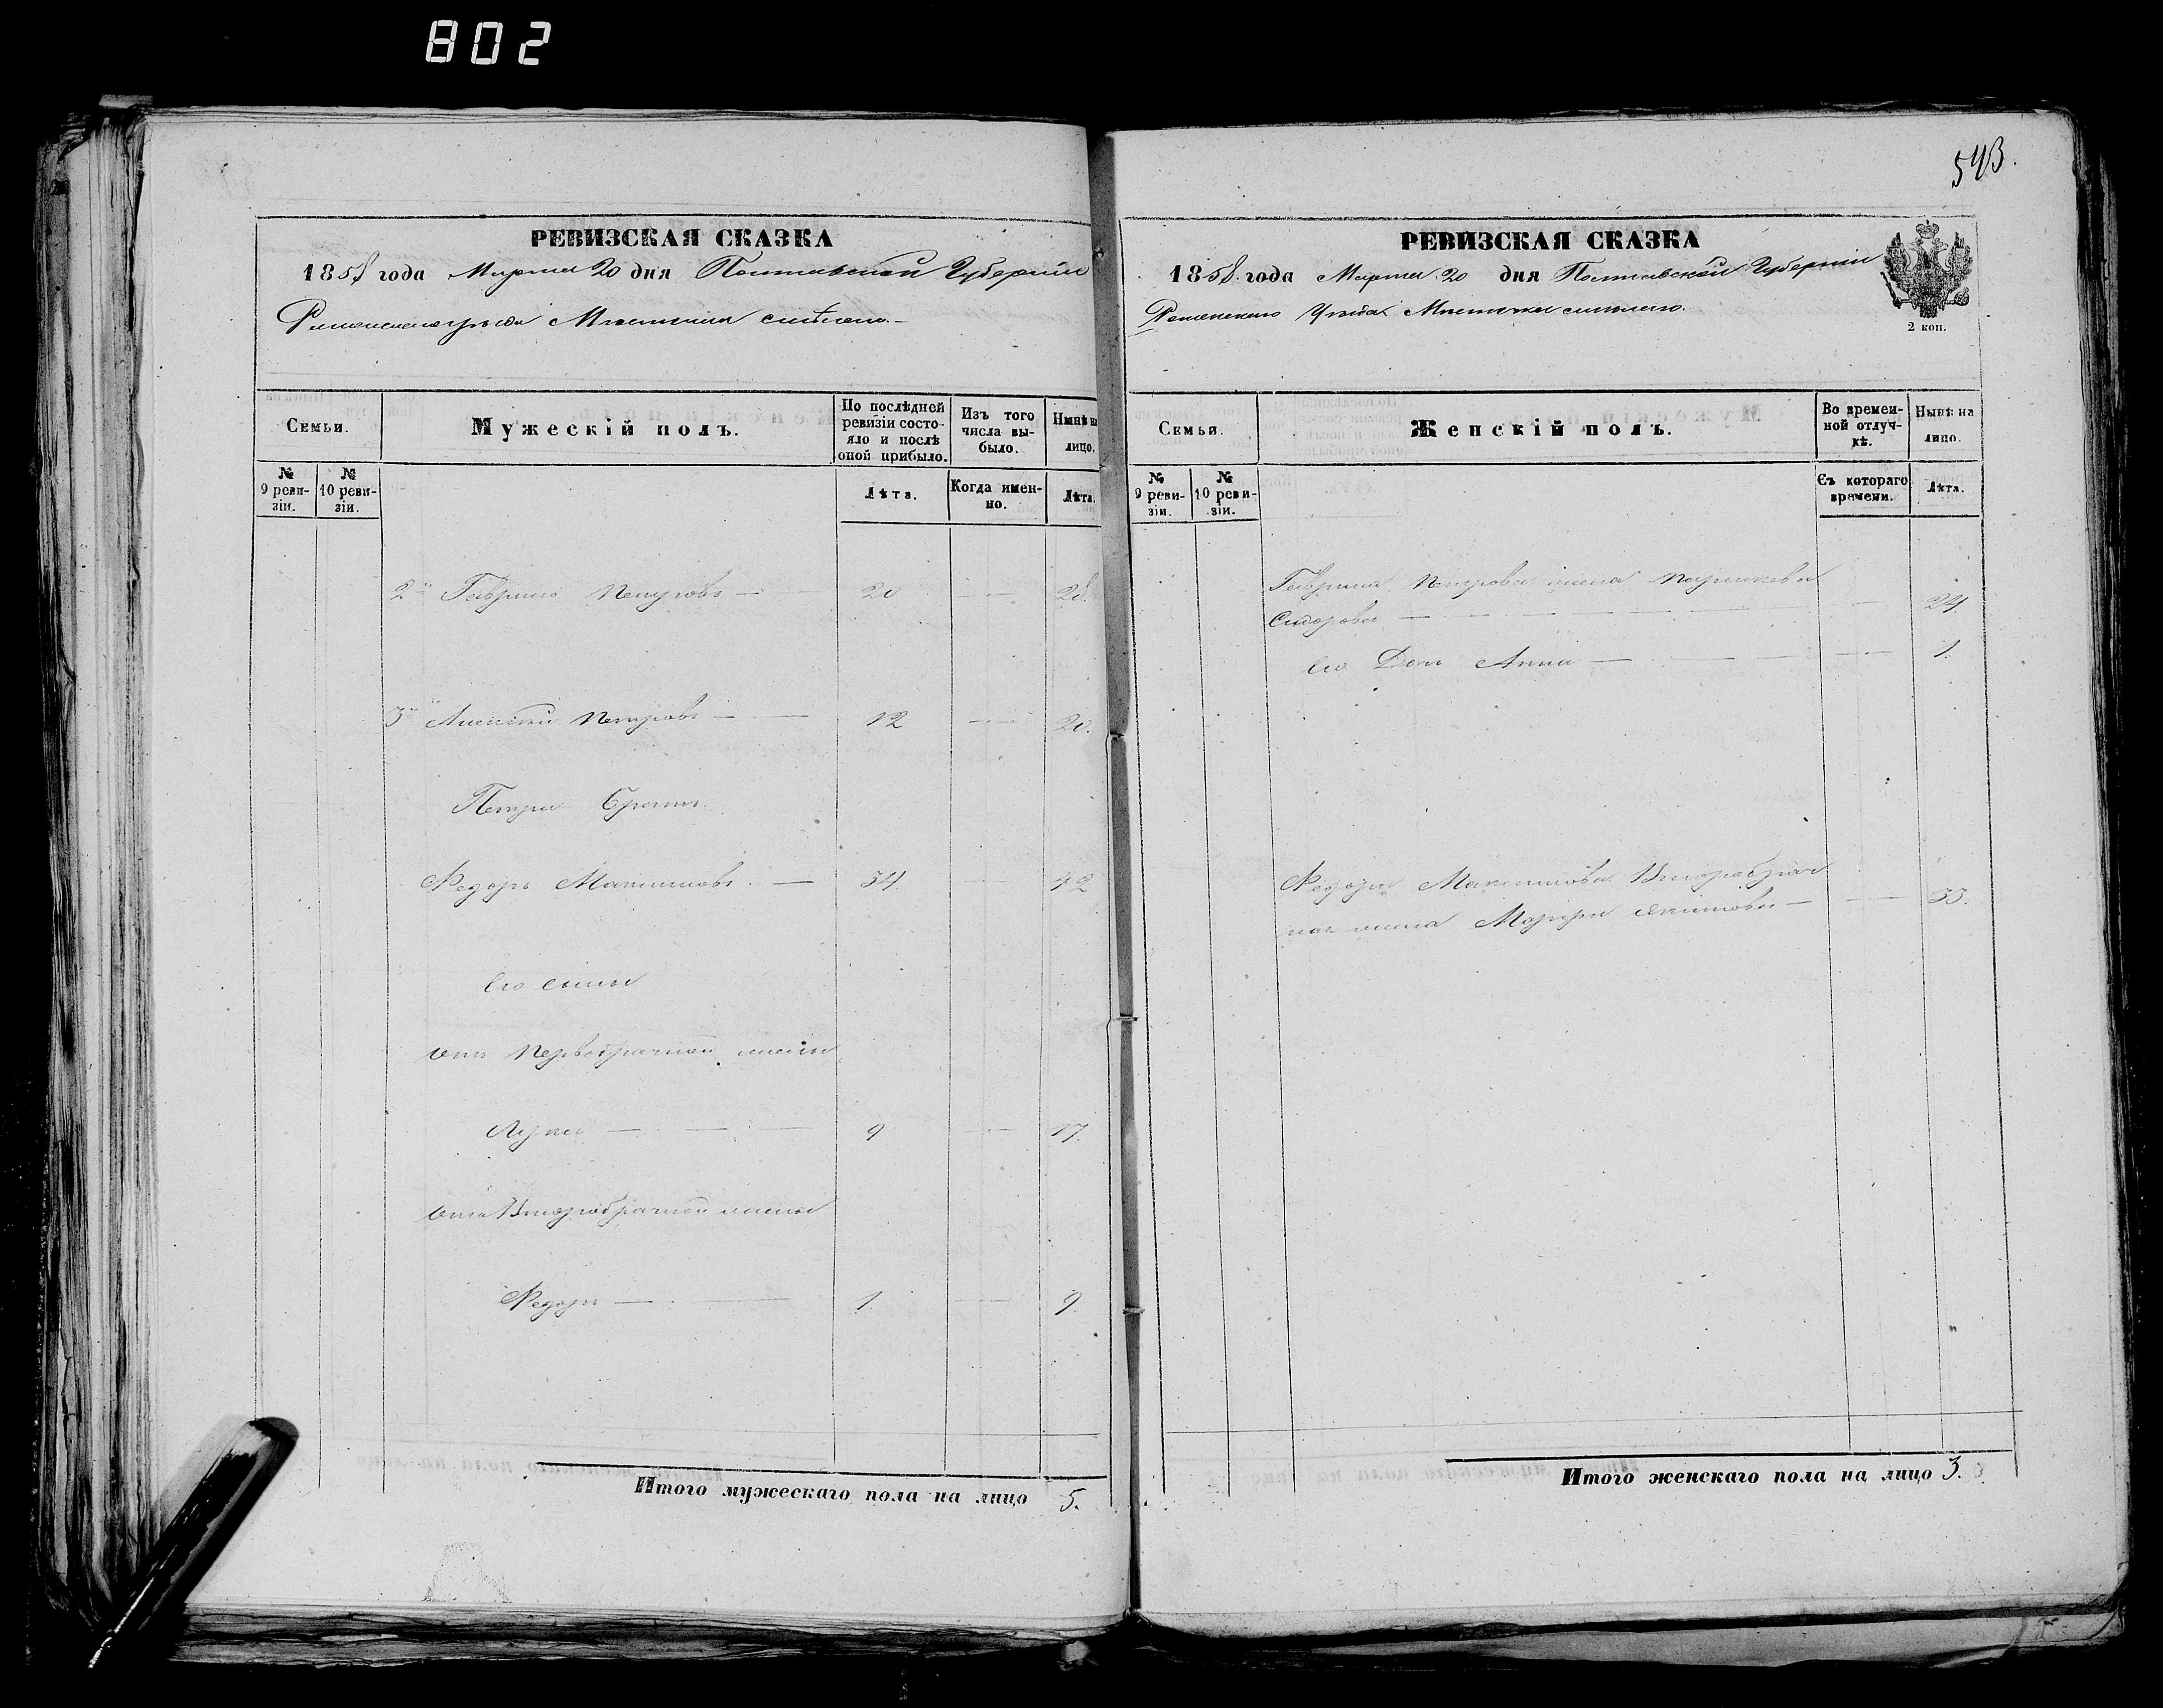 802
РЕВИЗСКАЯ СКАЗКА
1858 года Марта 20 дня Полтавской Губерніи
Роменскаго уѣзда Мѣстечка Смѣлаго.
Семьи.
Мужескій полъ.
По послѣдней ревизіи состояло и послѣ оной прибыло.
Изъ того числа выбыло.
Нынѣ на лицо.
№ 9 ревизіи.
№ 10 ревизіи.
Лѣта.
Когда именно.
Лѣта.
2й Гаврило Петровъ — 20 — 28.
3й Алексѣй Петровъ — 12 — 20.
Петра Братъ
Федоръ Максимовъ — 34 — 42
Его сыны
отъ Первобрачной жены
Лука — 9 — 17.
отъ Второбрачной жены
Федоръ — 1. — 9.
Итого мужескаго пола на лицо 5.
543.
РЕВИЗСКАЯ СКАЗКА
1858 года Марта 20 дня Полтавской Губерніи
Роменскаго Уѣзда Мѣстечка Смѣлаго.
2 коп.
Семьи.
Женскій полъ.
Во временной отлучкѣ.
Нынѣ на лицо.
№ 9 ревизіи.
№ 10 ревизіи.
Съ котораго времени.
Лѣта.
Гаврила Петрова жена Параскева
Сидорова — 24.
Его Дочь Анна — 1.
Федора Максимова Второбрач
ная жена Марфа Якимова — 33.
Итого женскаго пола на лицо 3.